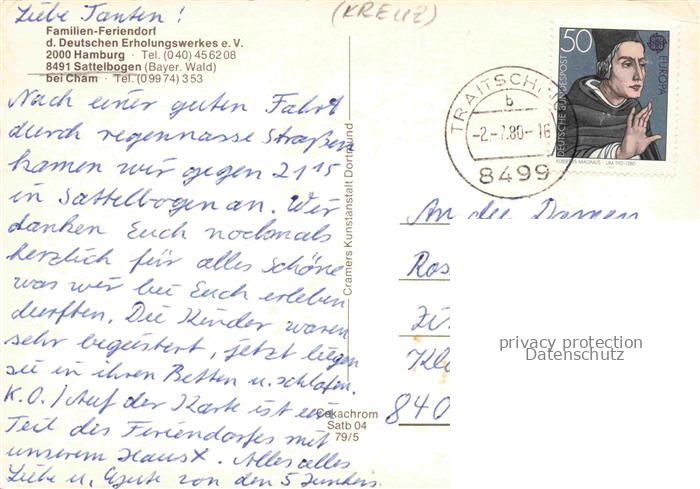 Liebe Tanten!
(KREUZ)
Familien-Feriendorf
d. Deutschen Erholungswerkes e. V.
2000 Hamburg · Tel. (040) 456208
8491 Sattelbogen (Bayer. Wald)
bei Cham · Tel. (09974) 353
Nach einer guten Fahrt
durch regennasse Straßen
kamen wir gegen 21¹⁵
in Sattelbogen an. Wir
danken Euch nochmals
herzlich für alles Schöne
was wir bei Euch erleben
durften. Die Kinder waren
sehr begeistert, jetzt liegen
sie in ihren Betten u. schlafen.
K.O.! Auf der Karte ist ein
Teil des Feriendorfes mit
unserem Haus X. Alles alles
Liebe u. Gute von den 5
Cramers Kunstanstalt Dortmund
Cekachrom
Satb 04
79/5
50
DEUTSCHE BUNDESPOST
EUROPA
ALBERTUS MAGNUS · UM 1193-1280
TRAITSCHING
b
-2.-7.80-16
8499
An die Damen
Ros
Kl
840
privacy protection
Datenschutz